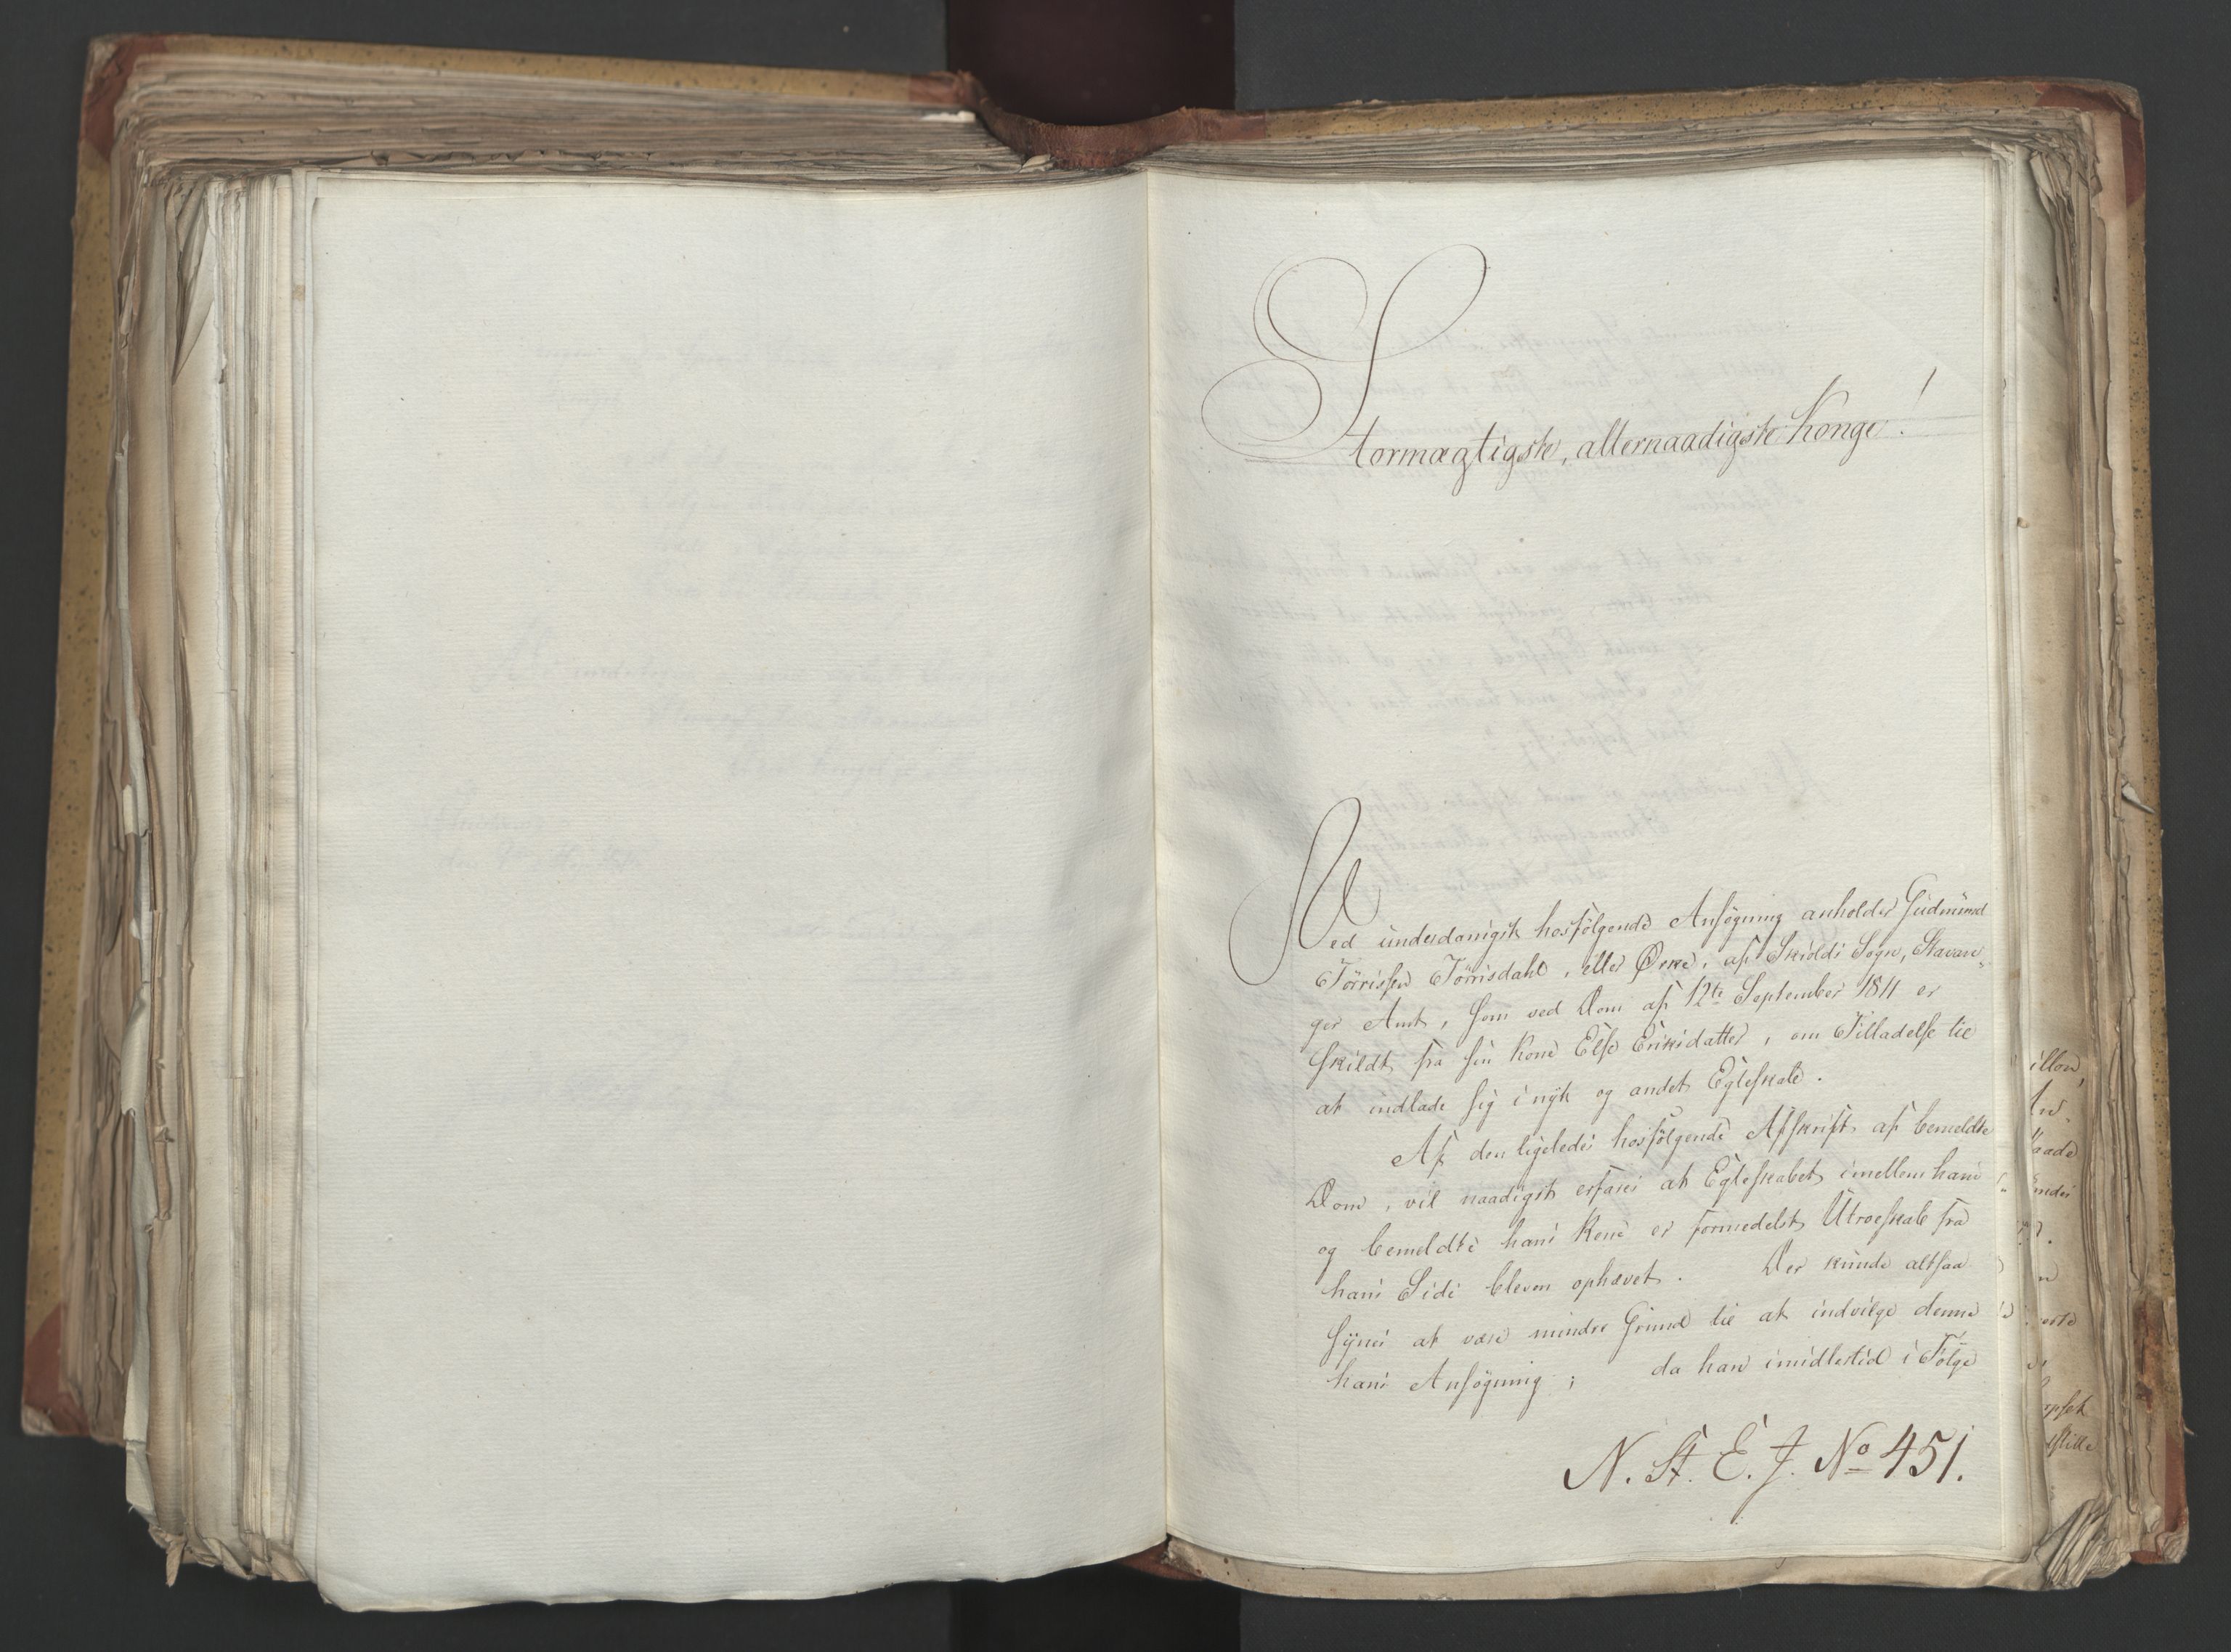 Stormægtigste, allernaadigste Konge!
Ved underdanigst hosfölgende Ansögning anholder Gudmund
Törrissen Törrisdahl, eller Ørke, af Skiolds Sogn, Stavan-
ger Amt, som ved Dom af 12te September 1811 er
skildt fra sin Kone Else Eriksdatter, om Tilladelse til
at indlade sig i nÿt og andet Egteskab.
Af den ligeledes hosfölgende Afskrift af bemeldte
Dom, vil naadigst erfares at Egteskabet imellem ham
og bemeldte hans Kone er formedelst Utroeskab fra
hans Side bleven ophævet. Der kunde altsaa
sÿnes at være mindre Grund til at indvilge denne
hans Ansögning; da han imidlertid i Fölge
N. St. E. J. No 451.